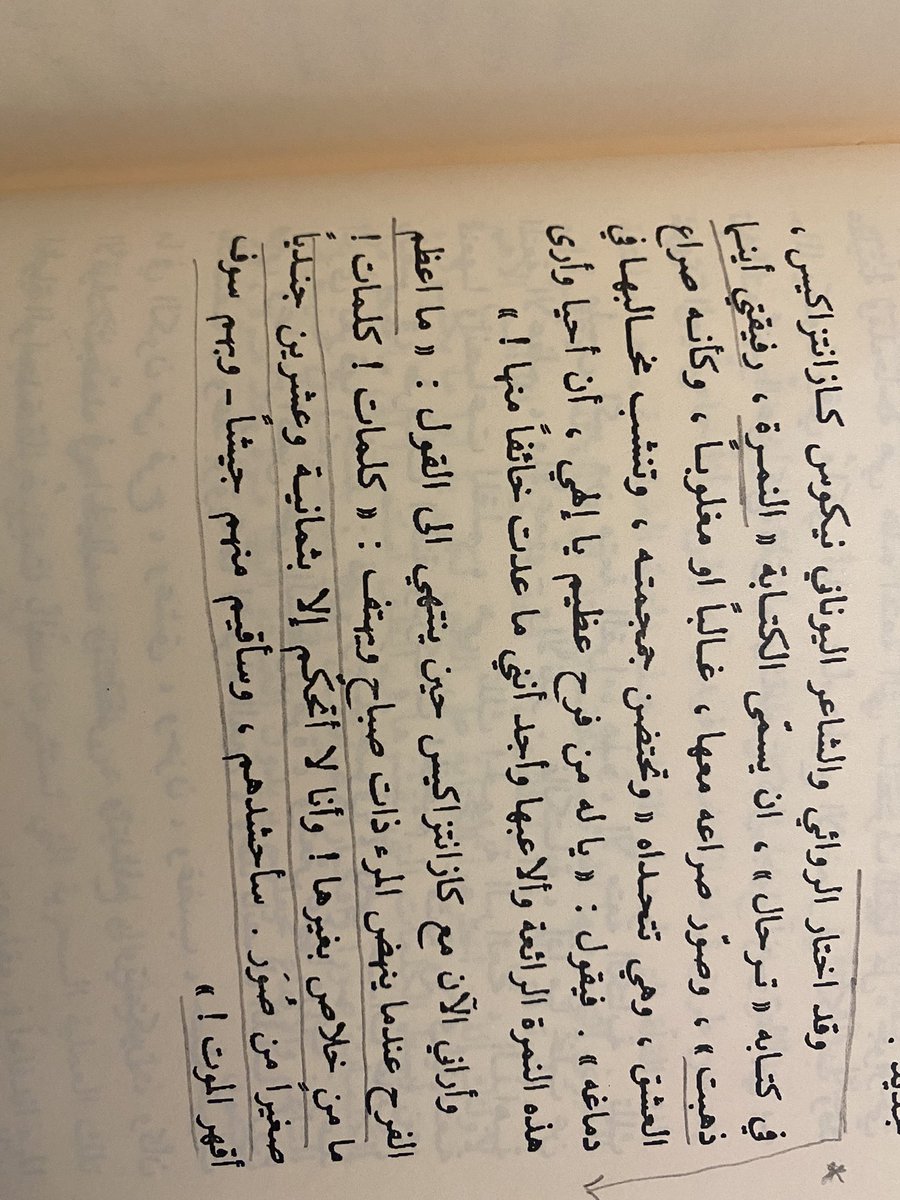 جديد .
وقد اختار الروائي والشاعر اليوناني نيكوس كازانتزاكيس ،
في كتابه « ترحال » ، ان يسمّى الكتابة « النمرة ، رفيقتي أينما
ذهبت » ، وصوّر صراعه معها ، غالباً او مغلوباً ، وكأنه صراع
العشق ، وهي تتحداه « وتحتضن جمجمته ، وتنشب مخالبها في
دماغه » . فيقول : « يا له من فرح عظيم يا إلهي ، أن أحيا وأرى
هذه النمرة الرائعة وألاعبها وأجد أنني ما عدت خائفاً منها ! »
وأراني الآن مع كازانتزاكيس حين ينتهي الى القول : « ما اعظم
الفرح عندما ينهض المرء ذات صباح ويهتف : « كلمات ! كلمات !
ما من خلاص بغيرها ! وأنا لا أتحكم إلا بثمانية وعشرين جندياً
صغيراً من صُوَر . سأحشدهم ، وسأقيم منهم جيشاً ـ وبهم سوف
أقهر الموت ! »